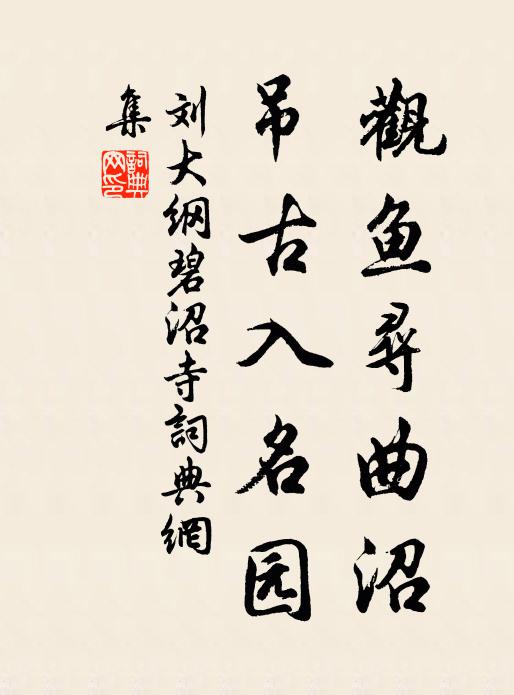 觀鱼尋曲沼
吊古入名园
刘大纲碧沼寺詞典網
集
詞典
网印